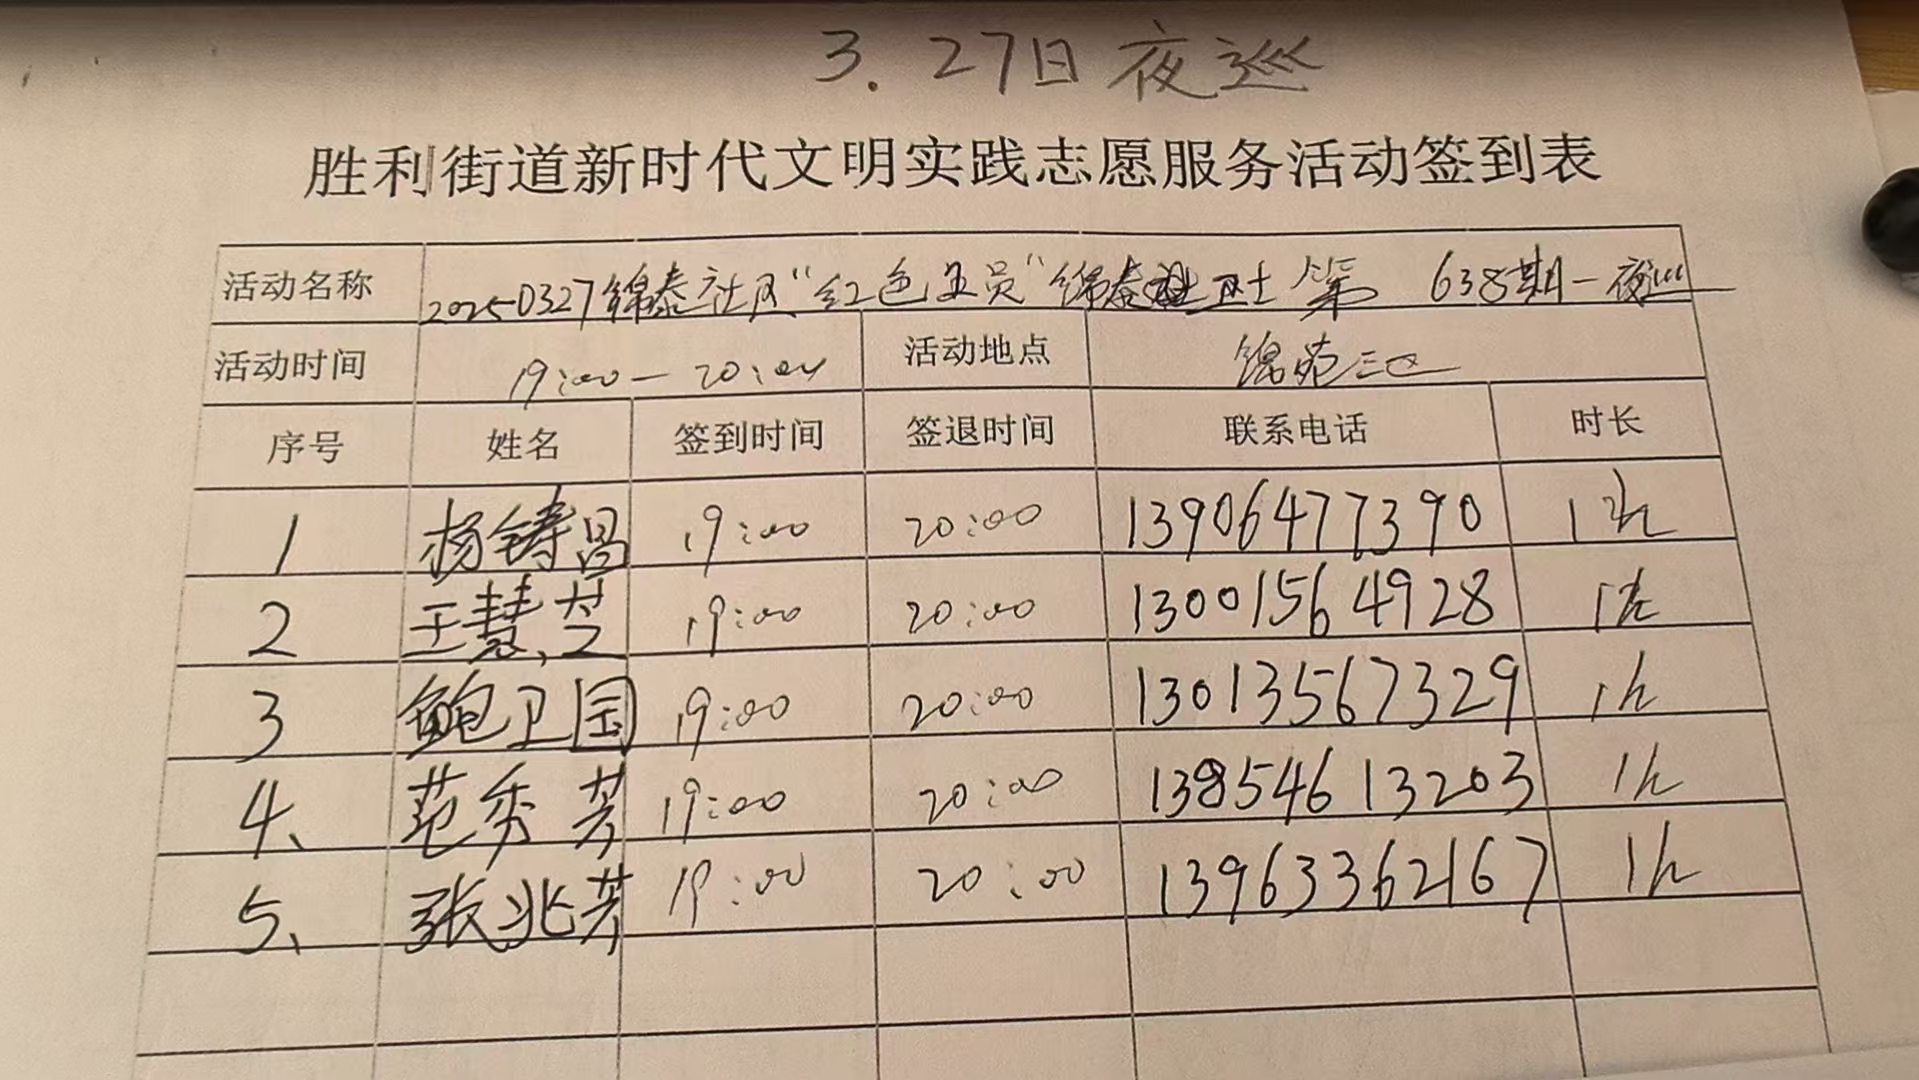 3.27日夜巡
胜利街道新时代文明实践志愿服务活动签到表
活动名称 20250327锦泰社区“红色五员”锦泰卫士 第 638期—夜巡
活动时间 19:00—20:00 活动地点 锦苑三区
序号 姓名 签到时间 签退时间 联系电话 时长
1 杨铸昌 19:00 20:00 13906477390 1h
2 王慧芝 19:00 20:00 13001564928 1h
3 鲍卫国 19:00 20:00 13013567329 1h
4、 范秀芳 19:00 20:00 13854613203 1h
5、 张兆芳 19:00 20:00 13963362167 1h